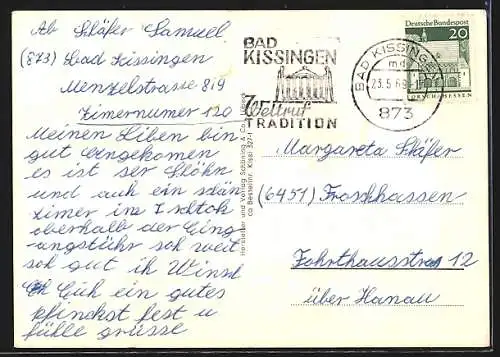 Ab Schäfer Samuel
(873) Bad Kissingen
Menzelstrasse 8/9
Zimernumer 120
Meinen Liben bin
gut Angekomen
es ist ser Schön
und auch ein schön
zimer im I schtok
oberhalb der Eing
angstühr soh weit
soh gut ih Winsh
Euh ein gutes
pfinckst fest u
fülle grüsse
Hersteller und Verlag Schöning & Co
BAD
KISSINGEN
Weltruf
TRADITION
BAD KISSINGEN
md
23.5.69
873
Deutsche Bundespost
20
LORSCH/HESSEN
Margareta Schäfer
(6451) Froschhausen
Fahrthausstras 12
über Hanau